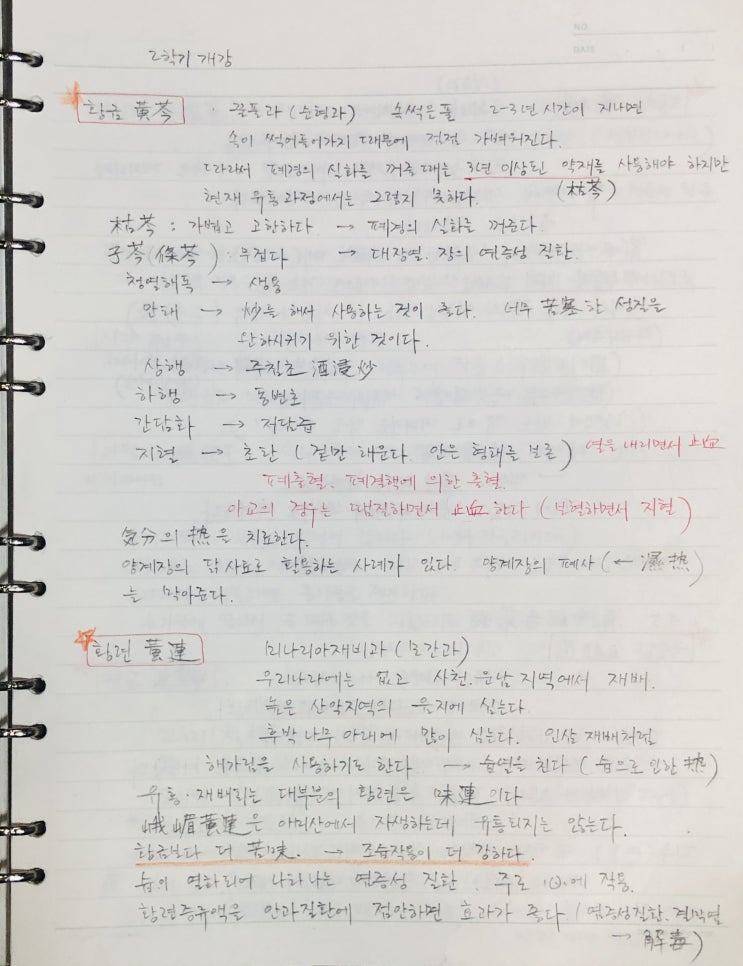 NO.
DATE
2학기 개강
황금 黃芩 · 꿀풀과 (순형과) 속썩은풀 2-3년 시간이 지나면
속이 썩어들어가기 때문에 점점 가벼워진다.
따라서 폐경의 실화를 꺼줄 때는 3년 이상된 약재를 사용해야 하지만
(枯芩)
현재 유통과정에서는 그렇지 못하다.
枯芩 : 가볍고 고항하다 → 폐경의 실화를 꺼준다.
子芩 (條芩) 무겁다 → 대장염. 장의 염증성 질환.
청열해독 → 생용
안태 → 炒를 해서 사용하는 것이 좋다. 너무 苦寒한 성질을
완화시키기 위한 것이다.
상행 → 주침초 酒浸炒
하행 → 동변초
간담화 → 저담즙
지혈 → 초탄 (겉만 태운다. 안은 형태를 보존) 열을 내리면서 止血
폐출혈. 폐결핵에 의한 출혈.
아교의 경우는 땜질하면서 止血한다 (보혈하면서 지혈)
気分의 热을 치료한다.
양계장의 닭 사료로 활용하는 사례가 있다. 양계장의 폐사 (← 濕热)
를 막아준다.
황련 黃連 미나리아재비과 (모간과)
우리나라에는 없고 사천.운남 지역에서 재배.
높은 산악지역의 음지에 심는다.
후박나무 아래에 많이 심는다. 인삼 재배처럼
해가림을 사용하기도 한다 → 습열을 친다 (습으로 인한 热)
유통·재배되는 대부분의 황련은 味連이다
峨嵋黃連은 아미산에서 자생하는데 유통되지는 않는다.
황금보다 더 苦味. → 조습작용이 더 강하다.
습이 열화되어 나타나는 염증성 질환. 주로 心에 작용.
황련증류액을 안과질환에 점안하면 효과가 좋다 (염증성질환. 결막염
→ 解毒)